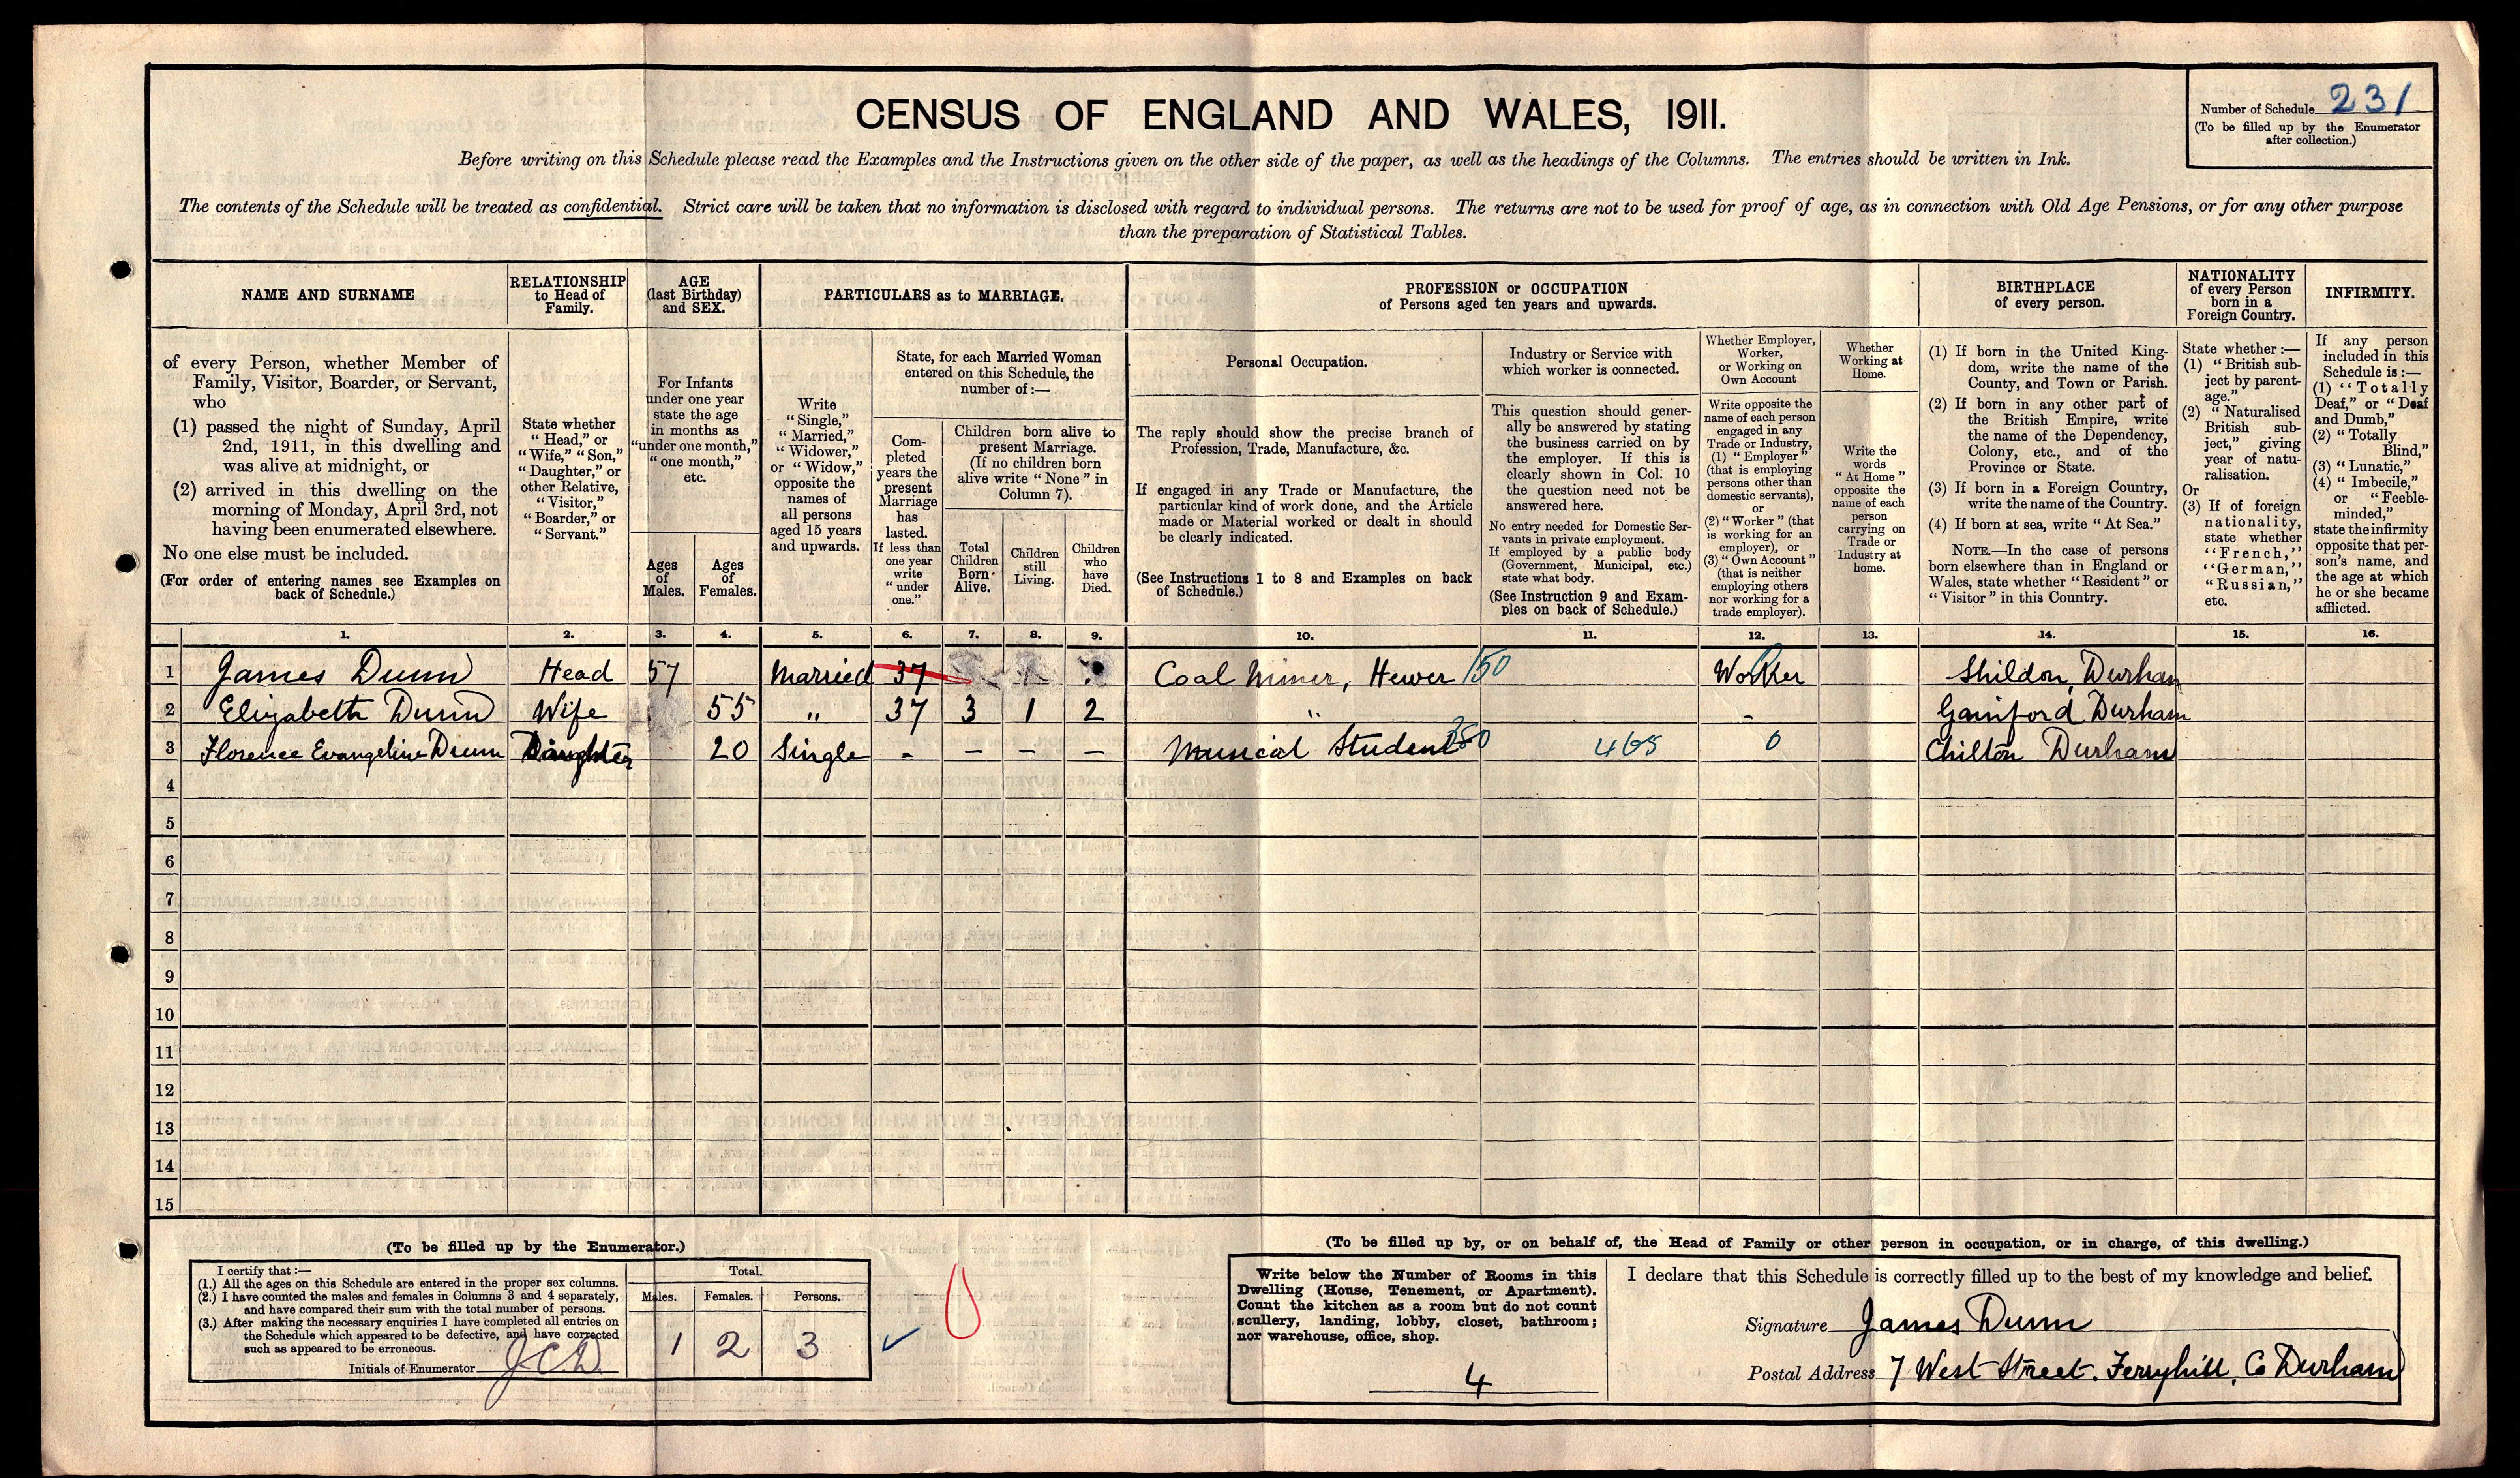 CENSUS OF ENGLAND AND WALES, 1911.
Number of Schedule 231
(To be filled up by the Enumerator
after collection.)
Before writing on this Schedule please read the Examples and the Instructions given on the other side of the paper, as well as the headings of the Columns. The entries should be written in Ink.
The contents of the Schedule will be treated as confidential. Strict care will be taken that no information is disclosed with regard to individual persons. The returns are not to be used for proof of age, as in connection with Old Age Pensions, or for any other purpose
than the preparation of Statistical Tables.
NAME AND SURNAME
of every Person, whether Member of
Family, Visitor, Boarder, or Servant,
who
(1) passed the night of Sunday, April
2nd, 1911, in this dwelling and
was alive at midnight, or
(2) arrived in this dwelling on the
morning of Monday, April 3rd, not
having been enumerated elsewhere.
No one else must be included.
(For order of entering names see Examples on
back of Schedule.)
RELATIONSHIP
to Head of
Family.
State whether
"Head," or
"Wife," "Son,"
"Daughter," or
other Relative,
"Visitor,"
"Boarder," or
"Servant."
AGE
(last Birthday)
and SEX.
For Infants
under one year
state the age
in months as
"under one month,"
"one month,"
etc.
Ages
of
Males.
Ages
of
Females.
PARTICULARS as to MARRIAGE.
Write
"Single,"
"Married,"
"Widower,"
or "Widow,"
opposite the
names of
all persons
aged 15 years
and upwards.
State, for each Married Woman
entered on this Schedule, the
number of:—
Com-
pleted
years the
present
Marriage
has
lasted.
If less than
one year
write
"under
one."
Children born alive to
present Marriage.
(If no children born
alive write "None" in
Column 7).
Total
Children
Born
Alive.
Children
still
Living.
Children
who
have
Died.
PROFESSION or OCCUPATION
of Persons aged ten years and upwards.
Personal Occupation.
The reply should show the precise branch of
Profession, Trade, Manufacture, &c.
If engaged in any Trade or Manufacture, the
particular kind of work done, and the Article
made or Material worked or dealt in should
be clearly indicated.
(See Instructions 1 to 8 and Examples on back
of Schedule.)
Industry or Service with
which worker is connected.
This question should gener-
ally be answered by stating
the business carried on by
the employer. If this is
clearly shown in Col. 10
the question need not be
answered here.
No entry needed for Domestic Ser-
vants in private employment.
If employed by a public body
(Government, Municipal, etc.)
state what body.
(See Instruction 9 and Exam-
ples on back of Schedule.)
Whether Employer,
Worker,
or Working on
Own Account
Write opposite the
name of each person
engaged in any
Trade or Industry,
(1) "Employer"
(that is employing
persons other than
domestic servants),
or
(2) "Worker" (that
is working for an
employer), or
(3) "Own Account"
(that is neither
employing others
nor working for a
trade employer).
Whether
Working at
Home.
Write the
words
"At Home"
opposite the
name of each
person
carrying on
Trade or
Industry at
home.
BIRTHPLACE
of every person.
(1) If born in the United King-
dom, write the name of the
County, and Town or Parish.
(2) If born in any other part of
the British Empire, write
the name of the Dependency,
Colony, etc., and of the
Province or State.
(3) If born in a Foreign Country,
write the name of the Country.
(4) If born at sea, write "At Sea."
NOTE.—In the case of persons
born elsewhere than in England or
Wales, state whether "Resident" or
"Visitor" in this Country.
NATIONALITY
of every Person
born in a
Foreign Country.
State whether:—
(1) "British sub-
ject by parent-
age."
(2) "Naturalised
British sub-
ject," giving
year of natu-
ralisation.
Or
(3) If of foreign
nationality,
state whether
"French,"
"German,"
"Russian,"
etc.
INFIRMITY.
If any person
included in this
Schedule is:—
(1) "Totally
Deaf," or "Deaf
and Dumb,"
(2) "Totally
Blind,"
(3) "Lunatic,"
(4) "Imbecile,"
or "Feeble-
minded,"
state the infirmity
opposite that per-
son's name, and
the age at which
he or she became
afflicted.
1. 2. 3. 4. 5. 6. 7. 8. 9. 10. 11. 12. 13. 14. 15. 16.
1 James Dunn Head 57 Married 37 Coal Miner, Hewer 150 Worker Shildon, Durham
2 Elizabeth Dunn Wife 55 " 37 3 1 2 " - Gainford Durham
3 Florence Evangeline Dunn Daughter 20 Single - - - - Musical Student 350 465 0 Chilton Durham
4
5
6
7
8
9
10
11
12
13
14
15
(To be filled up by the Enumerator.)
I certify that:—
(1.) All the ages on this Schedule are entered in the proper sex columns.
(2.) I have counted the males and females in Columns 3 and 4 separately,
and have compared their sum with the total number of persons.
(3.) After making the necessary enquiries I have completed all entries on
the Schedule which appeared to be defective, and have corrected
such as appeared to be erroneous.
Initials of Enumerator J.C.D.
Total.
Males. Females. Persons.
1 2 3
(To be filled up by, or on behalf of, the Head of Family or other person in occupation, or in charge, of this dwelling.)
Write below the Number of Rooms in this
Dwelling (House, Tenement, or Apartment).
Count the kitchen as a room but do not count
scullery, landing, lobby, closet, bathroom;
nor warehouse, office, shop.
4
I declare that this Schedule is correctly filled up to the best of my knowledge and belief.
Signature James Dunn
Postal Address 7 West Street. Ferryhill, Co Durham